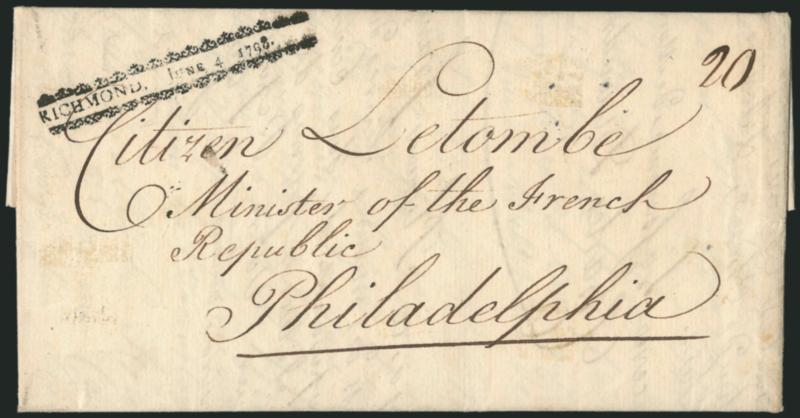 RICHMOND. JUNE 4 1798.
20
Citizen Letombe
Minister of the French
Republic
Philadelphia